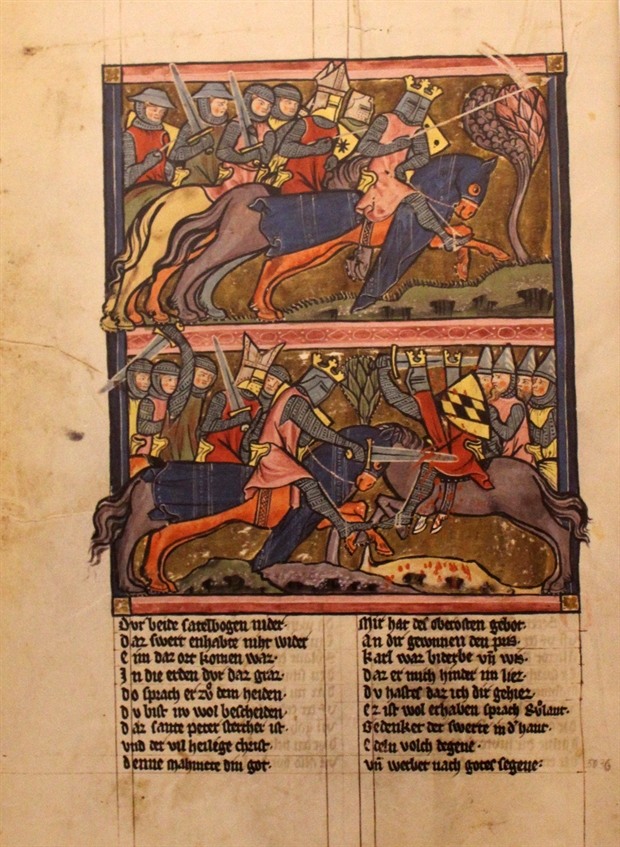 Dvr beide satelbogen nider·
Daz swert enhabte niht wider
E im daz ort komen waz·
In die erden dvr daz graz·
do sprach er zv dem heiden·
dv bist nv wol bescheiden·
daz sante peter stercher ist·
vnd der vil heilege christ·
denne mahmete din got·
Mir hat des obersten gebot·
An dir gewunnen den pris·
Karl waz biderbe vñ wis·
daz er mich hinder im liez·
Dv hastez daz ich dir gehiez·
Ez ist wol erhaben sprach Rvlant·
Gedenket der swerte in d' hant·
Edeln volch degene·
vñ werbet nach gotes segene·